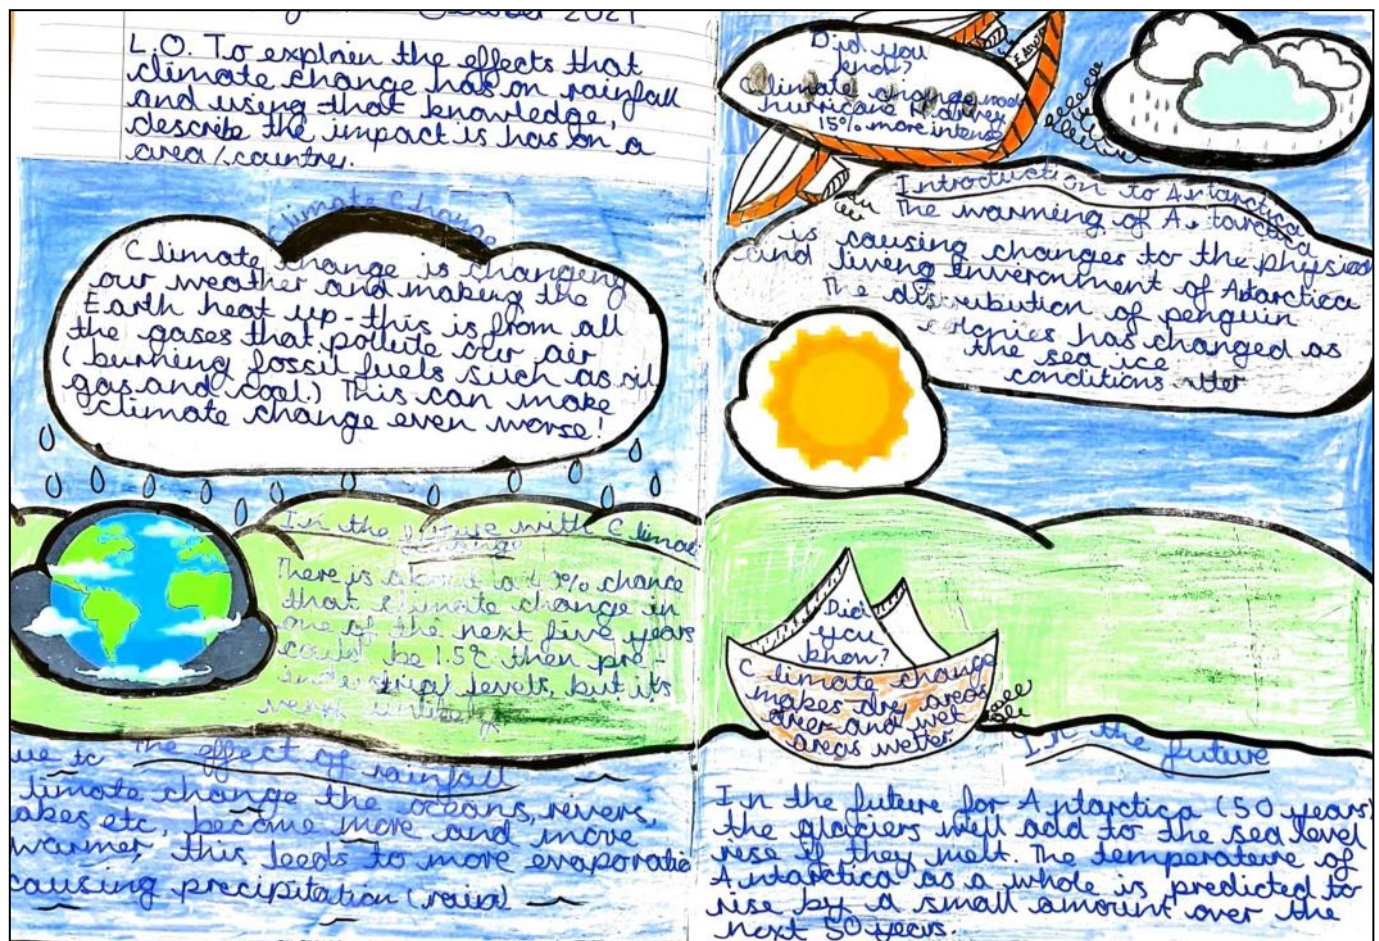 2021
L.O. To explain the effects that
climate change has on rainfall
and using that knowledge,
describe the impact is has on a
area/country.
Climate Change
Climate change is changing
our weather and making the
Earth heat up - this is from all
the gases that pollute our air
(burning fossil fuels such as oil,
gas and coal.) This can make
climate change even worse!
In the future with Climate
change
There is about a % chance
that climate change in
one of the next five years
could be 1.5℃ then pre-
industrial levels, but its
very unlikely
The effect of rainfall
ue to
limate change the oceans, rivers,
akes etc, become more and more
warmer, this leeds to more evaporatio
causing precipitation (rain)
Did you
know?
Climate change made
hurricane
15% more intense
Introduction to Antarctica
The warming of Antarctica
is causing changes to the physical
and living enveronment of Antarctica
The distribution of penguin
colonies has changed as
the sea ice
conditions
Did
you
know?
Climate change
makes dry areas
drier and wet
areas wetter
In the future
In the future for Antarctica (50 years)
the glaciers will add to the sea level
rise if they melt. The temperature of
Antarctica as a whole is predicted to
rise by a small amount over the
next 50 years.